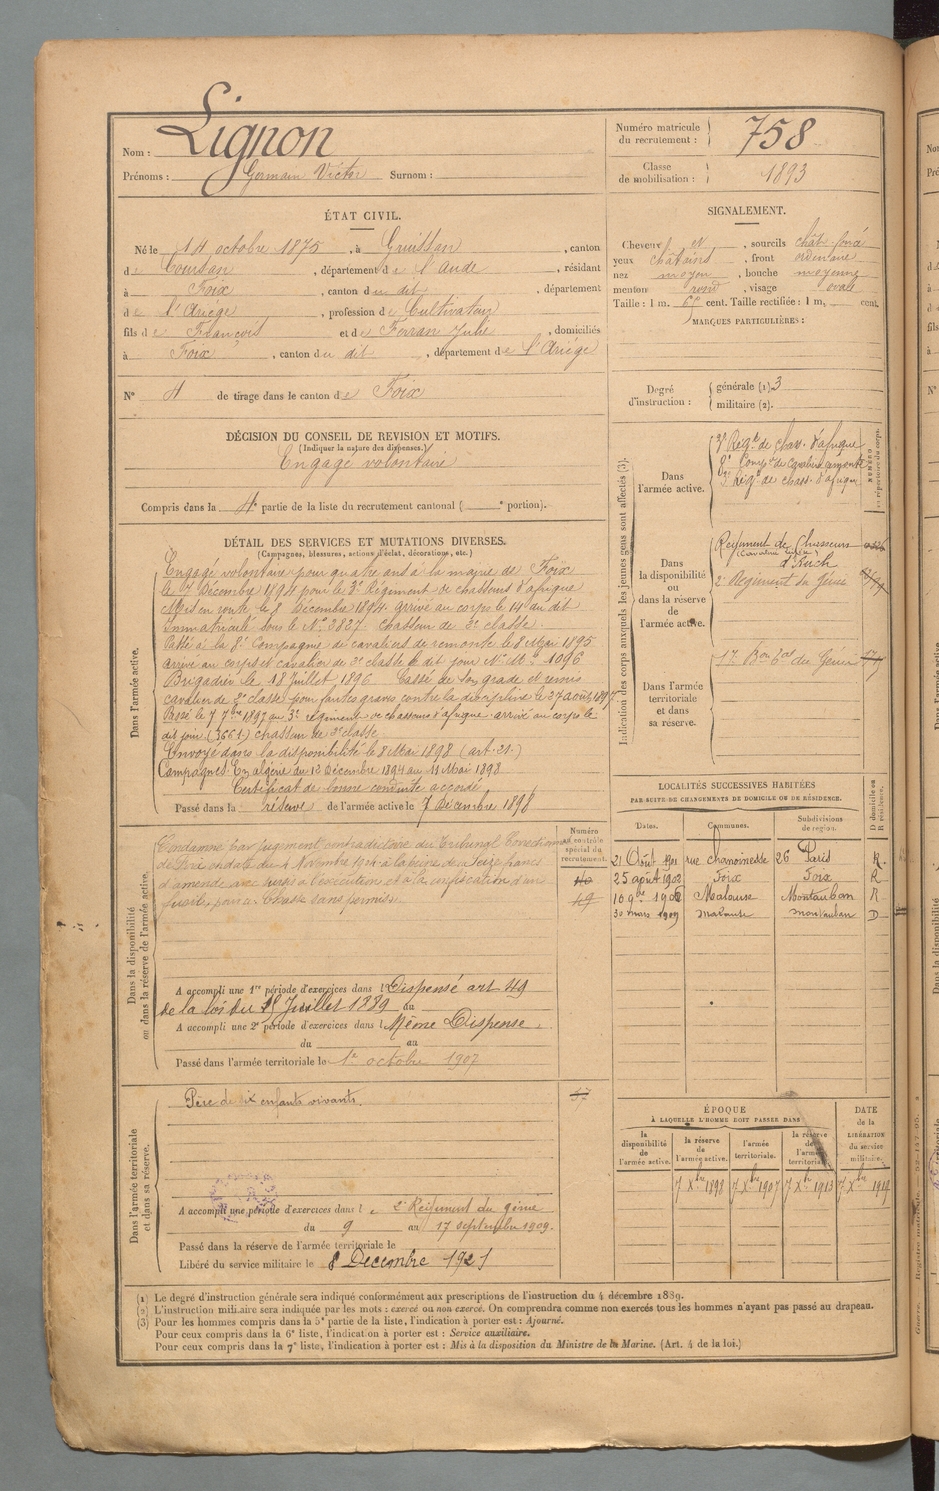 Nom : Lignon
Prénoms : Germain Victor Surnom :
Numéro matricule du recrutement : 758
Classe de mobilisation : 1893
ÉTAT CIVIL.
Né le 14 octobre 1875, à Gruissan, canton
de Coursan, département de l'Aude, résidant
à Foix, canton du dit, département
de l'Ariège, profession de Cultivateur
fils de François et de Ferran Julie, domiciliés
à Foix, canton du dit, département de l'Ariége
N° 4 de tirage dans le canton de Foix
DÉCISION DU CONSEIL DE REVISION ET MOTIFS.
(Indiquer la nature des dispenses.)
Engagé volontaire
Compris dans la 4e partie de la liste du recrutement cantonal ( e portion).
DÉTAIL DES SERVICES ET MUTATIONS DIVERSES.
(Campagnes, blessures, actions d'éclat, décorations, etc.)
Dans l'armée active.
Engagé volontaire pour quatre ans à la mairie de Foix
le 7 Décembre 1894 pour le 3e Régiment de chasseurs d'afrique
Mis en route le 8 Décembre 1894. arrivé au corps le 14 du dit
Immatriculé sous le N° 3827. Chasseur de 2e classe.
Passé à la 8e Compagnie de cavaliers de remonte le 8 Mai 1895
arrivé au corps et cavalier de 2e classe le dit jour N° M 1096
Brigadier le 18 Juillet 1896 Cassé de son grade et remis
cavalier de 2e classe pour fautes graves contre la discipline le 27 août 1897
Passé le 7 7bre 1897 au 3e régiment de chasseurs d'afrique arrivé au corps le
dit jour (3661) chasseur de 2e classe
Envoyé dans la disponibilité le 8 Mai 1898 (art. 21.)
Campagnes: En algérie du 12 Décembre 1894 au 11 Mai 1898
Certificat de bonne conduite accordé
Passé dans la réserve de l'armée active le 7 Décembre 1898
Numéro au contrôle spécial du recrutement.
Dans la disponibilité ou dans la réserve de l'armée active.
Condamné par jugement contradictoire du Tribunal Correctionnel
de Foix en date du 4 Novembre à la peine de Seize francs
d'amende avec sursis à l'exécution et à la confiscation d'un
fusil, pour Chasse sans permis.
40
49
A accompli une 1re période d'exercices dans l Dispensé art 49
de la loi du 15 Juillet 1889 au
A accompli une 2e période d'exercices dans l Même Dispense.
du au
Passé dans l'armée territoriale le 1er octobre 1907
Dans l'armée territoriale et dans sa réserve.
Père de six enfants vivants.
57
A accompli une période d'exercices dans l e 2e Régiment du génie
du 9 au 17 septembre 1909.
Passé dans la réserve de l'armée territoriale le
Libéré du service militaire le 8 Decembre 1921
SIGNALEMENT.
Cheveux et, sourcils chât. foncé
yeux châtains, front ordinaire
nez moyen, bouche moyenne
menton rond, visage ovale
Taille : 1 m. cent. Taille rectifiée : 1 m, cent.
MARQUES PARTICULIÈRES :
Degré d'instruction : générale (1). 3
militaire (2).
Indication des corps auxquels les jeunes gens sont affectés (3).
NUMÉRO au répertoire du corps.
Dans l'armée active.
3e Régt de chass. d'afrique
8e Compie de cavaliers remonte
3e Régt de chass. d'afrique
Dans la disponibilité ou dans la réserve de l'armée active.
Régiment de Chasseurs
(Cavalerie légère)
d'Auch
2e Régiment du Génie
Dans l'armée territoriale et dans sa réserve.
17e Bon Tal du Génie
LOCALITÉS SUCCESSIVES HABITÉES
PAR SUITE DE CHANGEMENTS DE DOMICILE OU DE RÉSIDENCE.
Dates. Communes. Subdivisions de région. D domicile ou R résidence.
21 Août 1901 rue chanoinesse 26 Paris R.
25 août 1902 Foix Foix R
10 9bre 1906 Malause Montauban R
30 mars 1909 Malause Montauban D
ÉPOQUE
À LAQUELLE L'HOMME DOIT PASSER DANS
la disponibilité de l'armée active.
la réserve de l'armée active.
l'armée territoriale.
la réserve de l'armée territoriale
DATE de la LIBÉRATION du service militaire.
7 Xbre 1898 7 Xbre 1907 7 Xbre 1913 7 Xbre 1919
(1) Le degré d'instruction générale sera indiqué conformément aux prescriptions de l'instruction du 4 décembre 1889.
(2) L'instruction militaire sera indiquée par les mots : exercé ou non exercé. On comprendra comme non exercés tous les hommes n'ayant pas passé au drapeau.
(3) Pour les hommes compris dans la 5e partie de la liste, l'indication à porter est : Ajourné.
Pour ceux compris dans la 6e liste, l'indication à porter est : Service auxiliaire.
Pour ceux compris dans la 7e liste, l'indication à porter est : Mis à la disposition du Ministre de la Marine. (Art. 4 de la loi.)